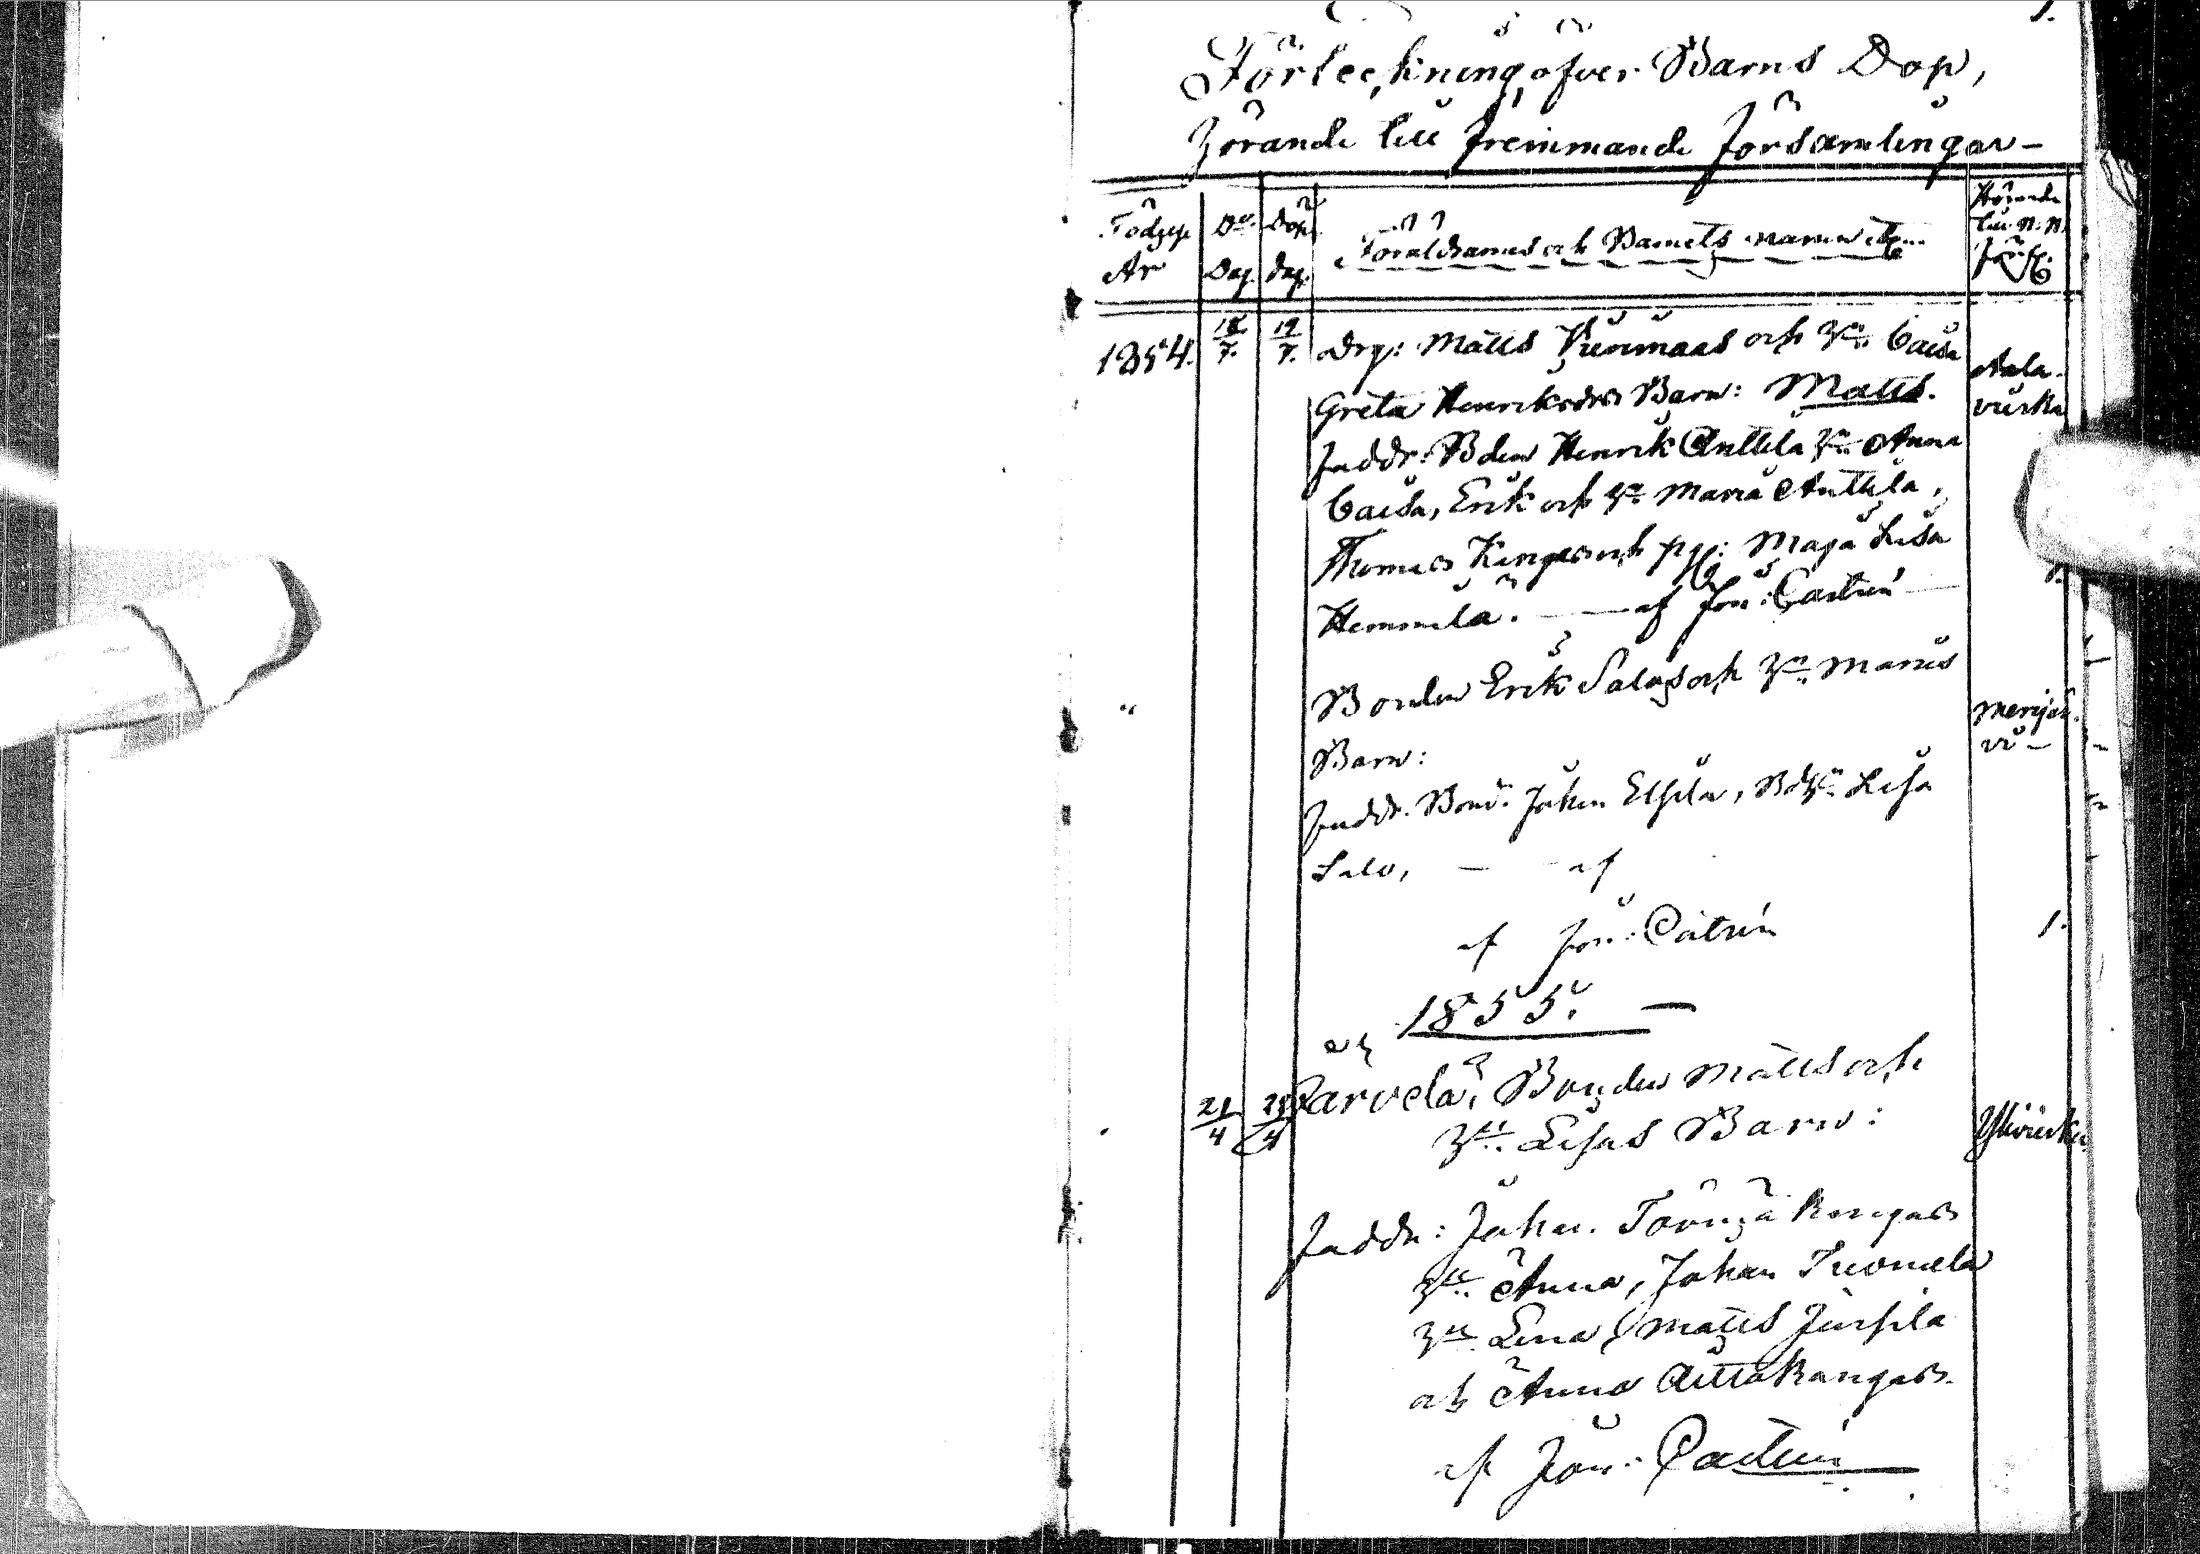 1.
Förteckning öfver Barns Dop,
hörande till främmande församlingar –
Födgse År
Do Dag.
Dop dag.
Föräldrarnes och Barnets namn etc.
Hörande till N. N. Förs.
1854. 18/7. 19/7. Drg: Matts och Hu. Caisa
Greta Henriksdrs Barn: Matts.
Ala-
viiska
Faddr: Bden Henrik Anttila Hu Anna
Caisa, Erik och Hu Maria Anttila,
Thomas Kangas och pig: Maja Lisa
Hemmila. — af Castrén
1.
" Bonden Erik Salos och Hu Marias
Merijär-
vi –
Barn:
Faddr. Bond. Johan Elfila, Lisa
Salo, — af
af Castrén 1.
1855. —
21/4 /4 Järvelä, Bonden Matts och
Hu Lisas Barn: Ylivieska
Faddr: Johan. Kangas
Hu Anna, Johan Tuomela
Hu Lena, Matts Junsila
och Anna Aittokangas.
af Castrén